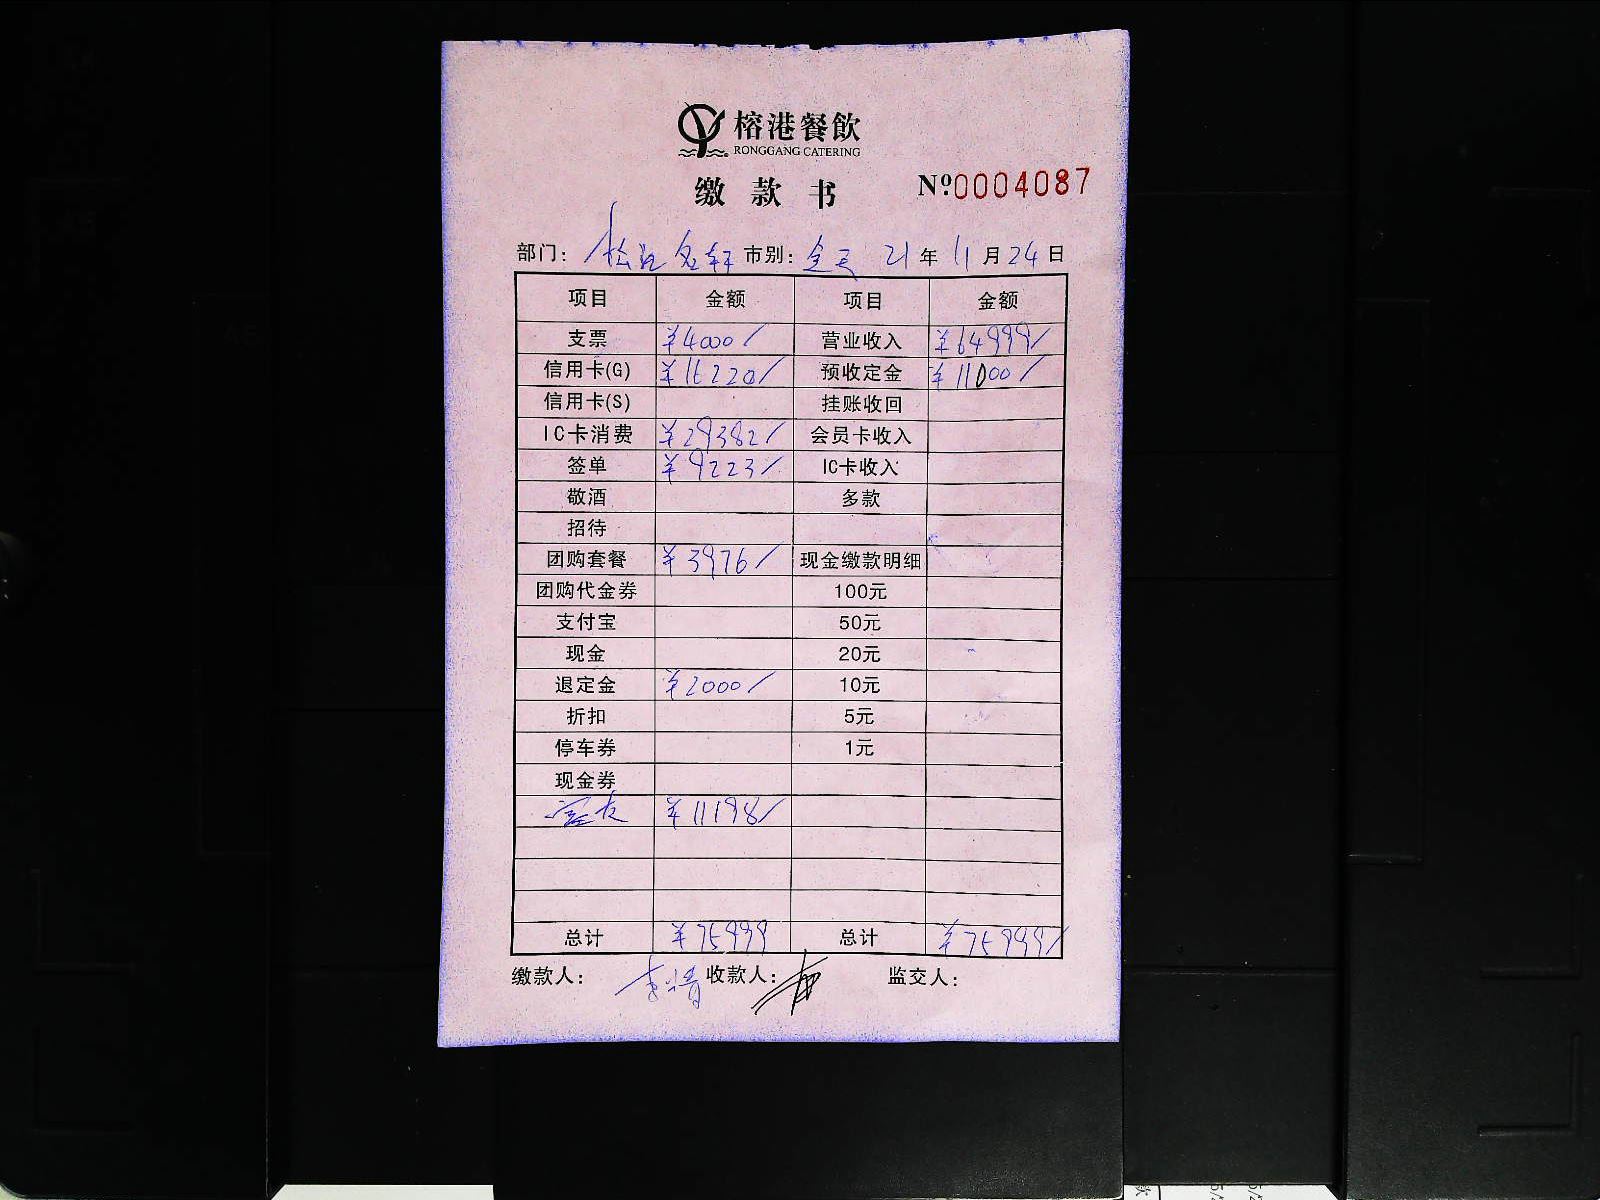 榕港餐飲
RONGGANG CATERING
缴款书 №0004087
部门: 松江名轩 市别: 全天 21年11月24日
项目 金额 项目 金额
支票 ¥4000/ 营业收入 ¥64999/
信用卡(G) ¥16220/ 预收定金 ¥11000/
信用卡(S) 挂账收回
IC卡消费 ¥29382/ 会员卡收入
签单 ¥9223/ IC卡收入
敬酒 多款
招待
团购套餐 ¥3976/ 现金缴款明细
团购代金券 100元
支付宝 50元
现金 20元
退定金 ¥2000/ 10元
折扣 5元
停车券 1元
现金券
¥11198/
总计 ¥75999 总计 ¥75999/
缴款人: 收款人: 监交人: